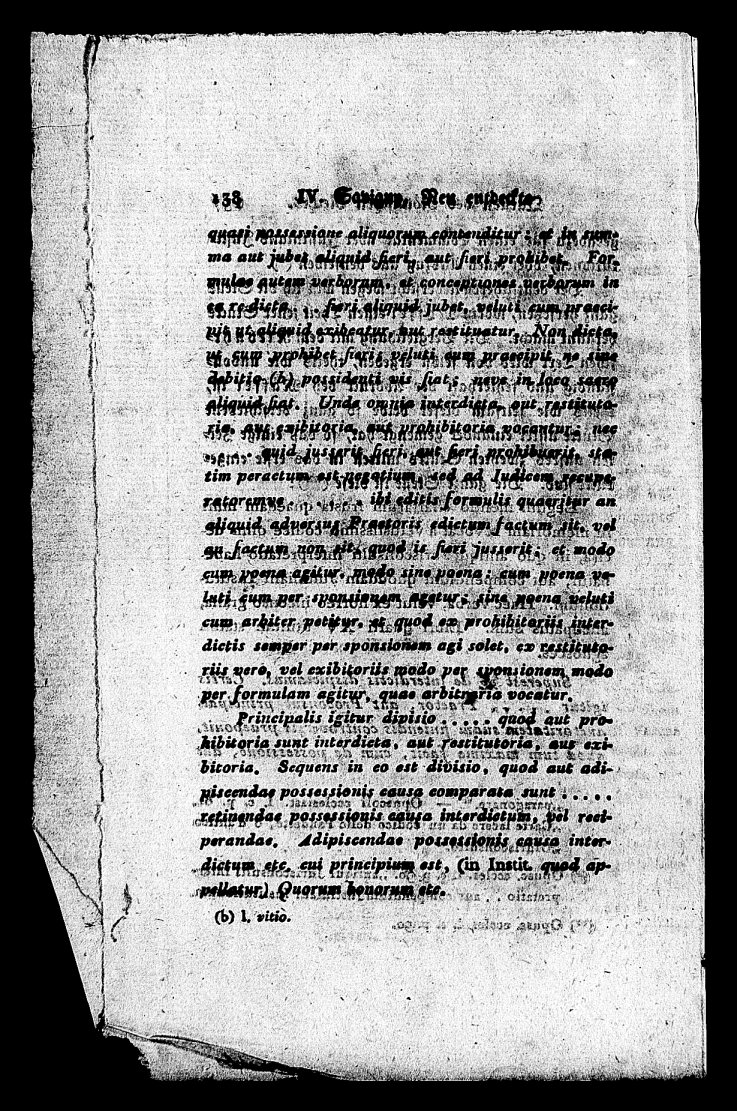 138 IV. Savigny, Neu entdeckte
quasi possessione aliquorum contenditur: et in sum-
ma aut jubet aliquid fieri, aut fieri prohibet. For-
mulae autem verborum, et conceptiones verborum in
ea re dicta . . fieri aliquid jubet, veluti cum praeci-
pit ut aliquid exibeatur, aut restituatur. Non dicta,
ut cum prohibet fieri; veluti cum praecipit, ne sine
debitio (b) possidenti vis fiat; neve in loco sacro
aliquid fiat. Unde omnia interdicta, aut restituto-
ria, aut exibitoria, aut prohibitoria vocantur; nec
. . . . quid jusserit fieri, aut fieri prohibuerit, sta-
tim peractum est negotium, sed ad Iudicem recupe-
ratoremve . . . . ibi editis formulis quaeritur an
aliquid adversus Praetoris edictum factum sit, vel
an factum non sit, quod is fieri jusserit; et modo
cum poena agitur, modo sine poena: cum poena ve-
luti cum per sponsionem agetur; sine poena veluti
cum arbiter petitur, et quod ex prohibitoriis inter-
dictis semper per sponsionem agi solet, ex restituto-
riis vero, vel exibitoriis modo per sponsionem modo
per formulam agitur, quae arbitraria vocatur.
Principalis igitur divisio . . . . . quod aut pro-
hibitoria sunt interdicta, aut restitutoria, aut exi-
bitoria. Sequens in eo est divisio, quod aut adi-
piscendae possessionis causa comparata sunt . . . . .
retinendae possessionis causa interdictum, vel recī-
perandae. Adipiscendae possessionis causa inter-
dictum etc. cui principium est, (in Instit. quod ap-
pellatur) Quorum bonorum etc.
(b) l. vitio.